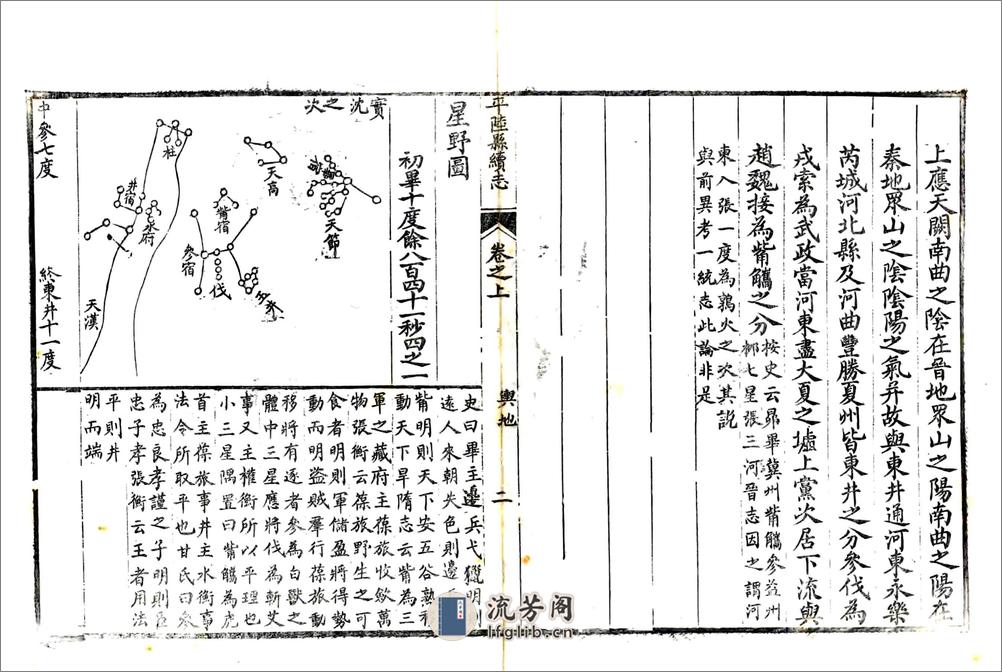 上應天闕南曲之陰在晉地眾山之陽南曲之陽在
秦地眾山之陰陰陽之氣并故與東井通河東永樂
芮城河北縣及河曲豐勝夏州皆東井之分參伐為
戎索為武政當河東盡大夏之墟上黨次居下流與
趙魏接為觜觿之分按史云昴畢冀州觜觿參益州
柳七星張三河晉志因之謂河
東入張一度為鶉火之次其說
與前異考一統志此論非是
平陸縣續志
卷之上
輿地
二
星野圖
初畢十度餘八百四十一秒四之一
實沈之次
中參七度
終東井十一度
天節
天高
柱
井宿
水府
觜宿
參宿
伐
玉井
天漢
史曰畢主邊兵弋獵明則
遠人來朝失色則邊
觜明則天下安五谷熟
動天下旱隋志云觜為三
軍之藏府主葆旅收斂萬
物張衡云葆旅野生之可
食者明則軍儲盈將得勢
動而明盜賊羣行葆旅動
移將有逐者參為白獸之
體中三星應將伐為斬艾
事又主權衡所以平理也
小三星隅置曰觜觿為虎
首主葆旅事井主水衡事
法令所取平也甘氏曰參
為忠良孝謹之子明則臣
忠子孝張衡云王者用法
平則井
明而端
流芳阁
lfglib.cn